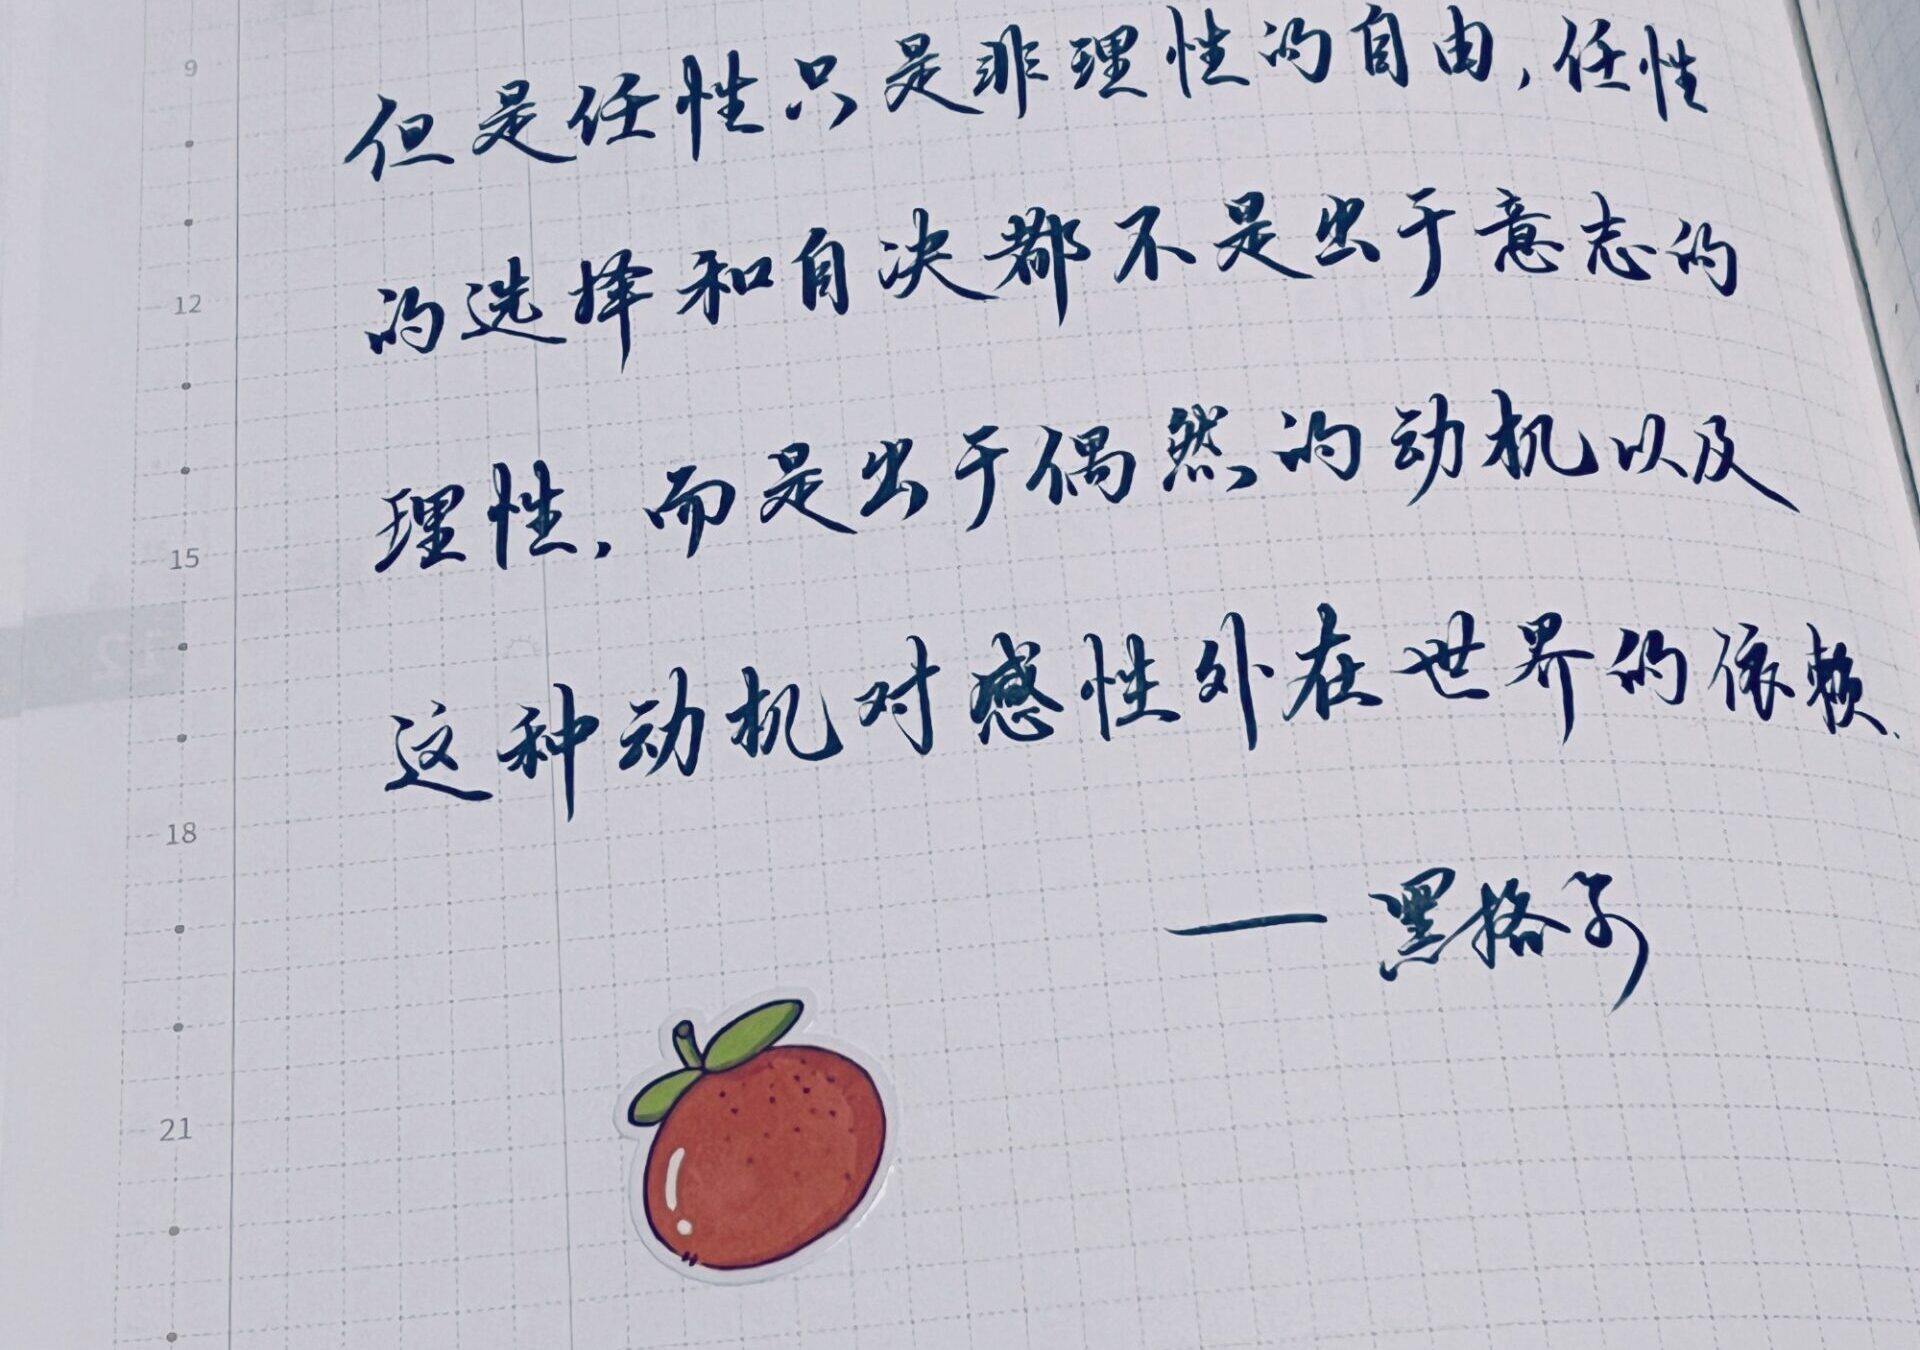 9
但是任性只是非理性的自由，任性
12
的选择和自决都不是出于意志的
15
理性，而是出于偶然的动机以及
这种动机对感性外在世界的依赖、
18
——黑格尔
21